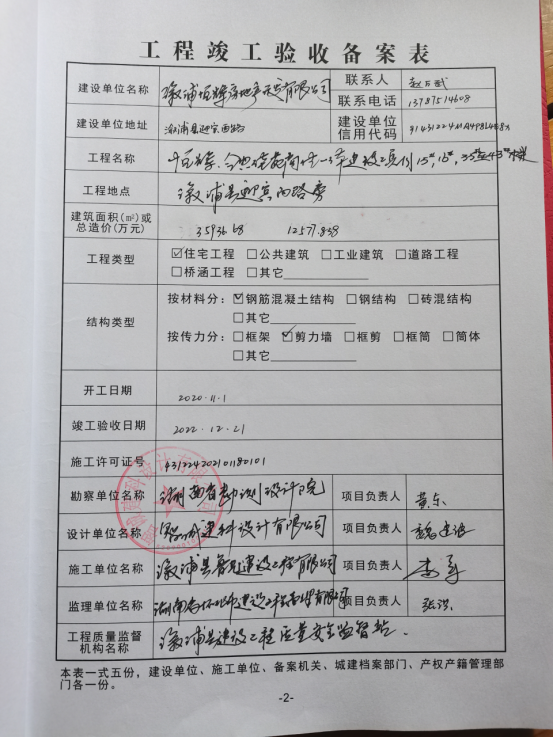 工程竣工验收备案表
建设单位名称 溆浦恒辉房地产开发有限公司 联系人
联系电话 13787514608
建设单位地址 溆浦县迎宾西路 建设单位信用代码
工程名称
工程地点 溆浦县迎宾西路旁
建筑面积(m²)或总造价(万元) 35936.68 12577.838
工程类型 ☑住宅工程 □公共建筑 □工业建筑 □道路工程
□桥涵工程 □其它
结构类型 按材料分：☑钢筋混凝土结构 □钢结构 □砖混结构
□其它
按传力分：□框架 ☑剪力墙 □框剪 □框筒 □筒体
□其它
开工日期 2020.11.1
竣工验收日期 2022.12.21
施工许可证号 431224202101180101
勘察单位名称 湖南省勘测设计院 项目负责人 黄东
设计单位名称 建科设计有限公司 项目负责人
施工单位名称 溆浦县 建设工程有限公司 项目负责人 李军
监理单位名称 湖南省怀化 建设工程 有限公司 项目负责人 张洪
工程质量监督机构名称 溆浦县建设工程质量安全监督站.
本表一式五份，建设单位、施工单位、备案机关、城建档案部门、产权产籍管理部
门各一份。
-2-